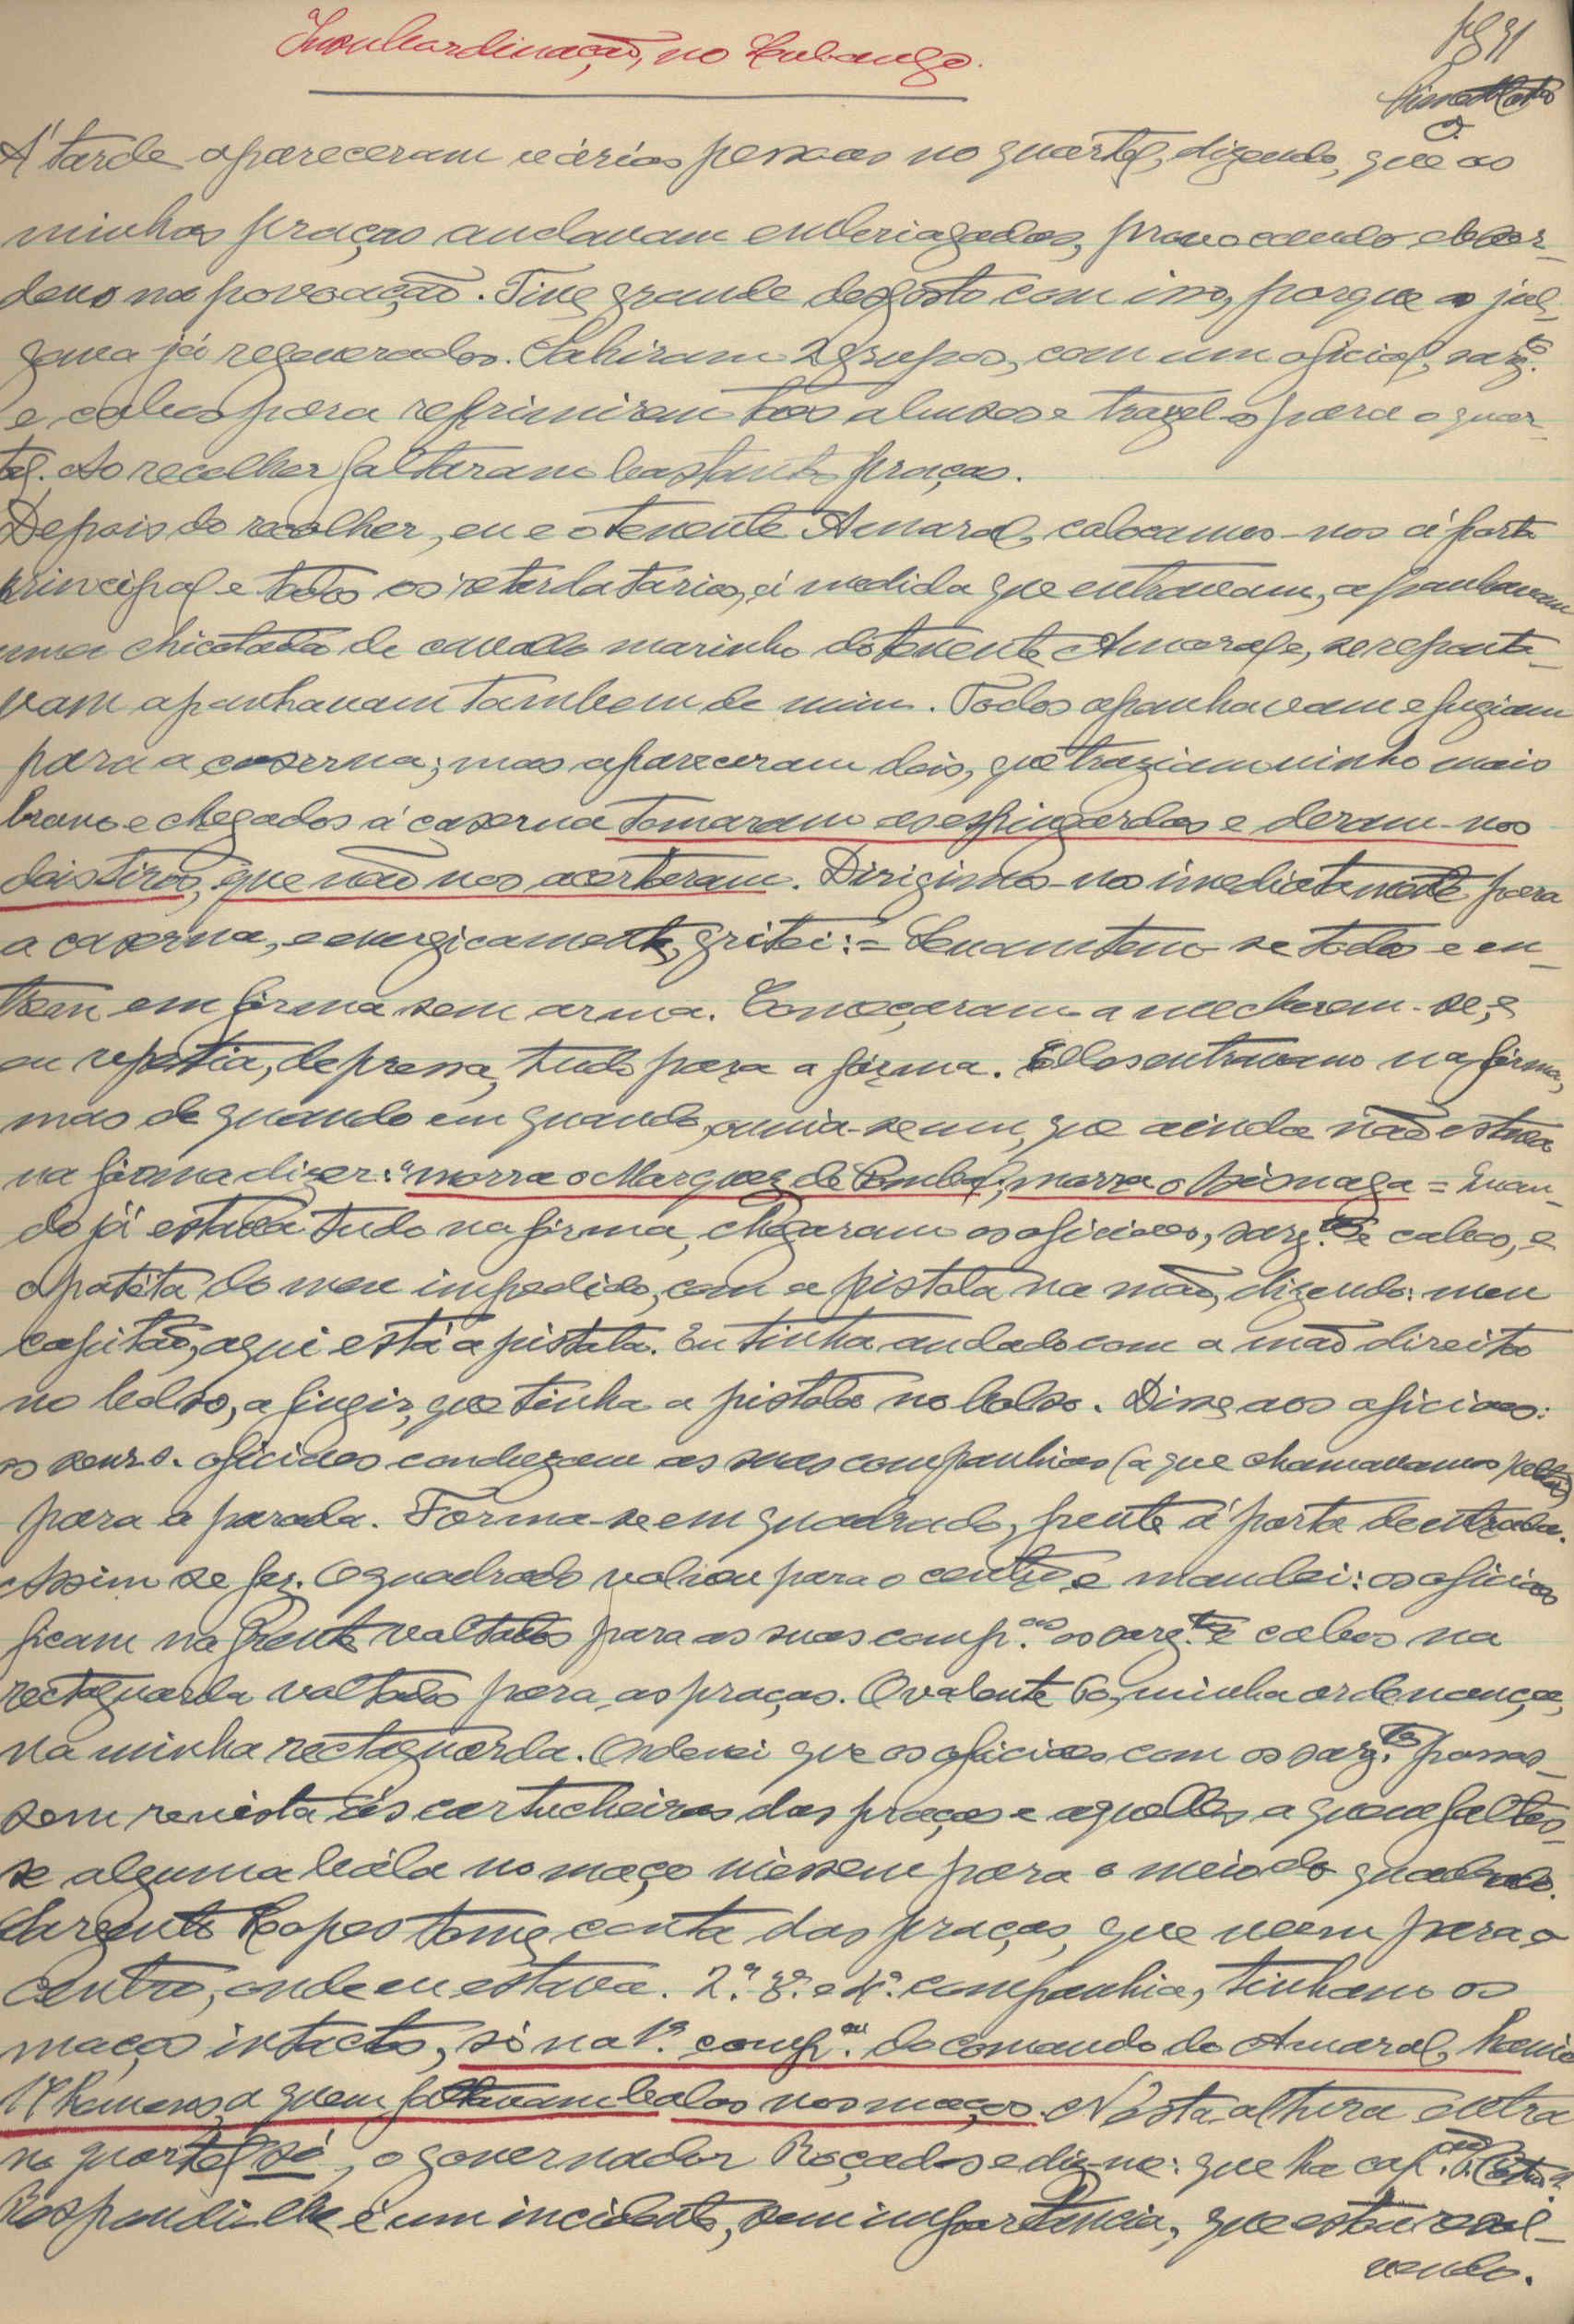 Insubordinação, no Cubango.
A' tarde apareceram várias pessoas no quartel, dizendo, que as
minhas praças andavam embriagadas, provocando desor-
dens na povoação. Tive grande desgosto com isso, porque os jul-
gava já regenerados. Sahiram 2 grupos, com um oficial, sarg.to
e cabos para reprimirem tais abusos e trazel-os para o quar-
tel. Ao recolher faltaram bastantes praças.
Depois do recolher, eu e o tenente Amaral, colocamos-nos á porta
principal e todos os retardatarios, á medida que entravam, apanhavam
uma chicotada de cavallo marinho do tenente Amaral e, se reponta-
vam apanhavam tambem de mim. Todos apanhavam e fugiam
para a caserna; mas apareceram dois, que traziam vinho mais
bravo e chegados á caserna tomaram as espingardas e deram-nos
dois tiros, que não nos acertaram. Dirigimos-nos imediatamente para
a caserna, e energicamente, gritei: = Levantem-se todos e en-
trem em fórma sem arma. Começaram a mecherem-se, e
eu repetia, depressa, tudo para a fórma. Elles entravam na fórma,
mas de quando em quando, ouvia-se um, que ainda não estava
na fórma dizer: "morra o Marquez de Pombal, morra o = Quan-
do já estava tudo na fórma, chegaram os oficiaes, sarg.tos e cabos, e
o patéta do meu impedido, com a pistola na mão, dizendo: meu
capitão, aqui está a pistola. Eu tinha andado com a mão direita
no bolso, a fingir, que tinha a pistola no bolso. Disse aos oficiaes:
os snrs. oficiaes conduzam as suas companhias (a que chamavamos
para a parada. Forma-se em quadrado, frente á porta de entrada.
Assim se fez. O quadrado voltou para o centro e mandei: os oficiaes
ficam na frente voltados para as suas comp.as os sarg.tos e cabos na
rectaguarda voltados para as praças. O valente 60, minha ordenança,
na minha rectaguarda. Ordenei que os oficiaes com os sarg.tos passas-
sem revista ás cartucheiras das praças e aquelles a quem faltas-
se alguma bála no maço viessem para o meio do quadrado.
Sargento Lopes tome conta das praças, que veem para o
centro, onde eu estava. 2.ª 3.ª e 4.ª companhia, tinham os
maços intactos, só na 1.ª comp.ª do comando do Amaral, havia
homens, a quem faltavam balas nos maços. N'esta altura entra
no quartel só, o governador Roçadas e diz-me: que ha cap.ão
Respondi-lhe é um incidente, sem importancia, que estou resol-
vendo.